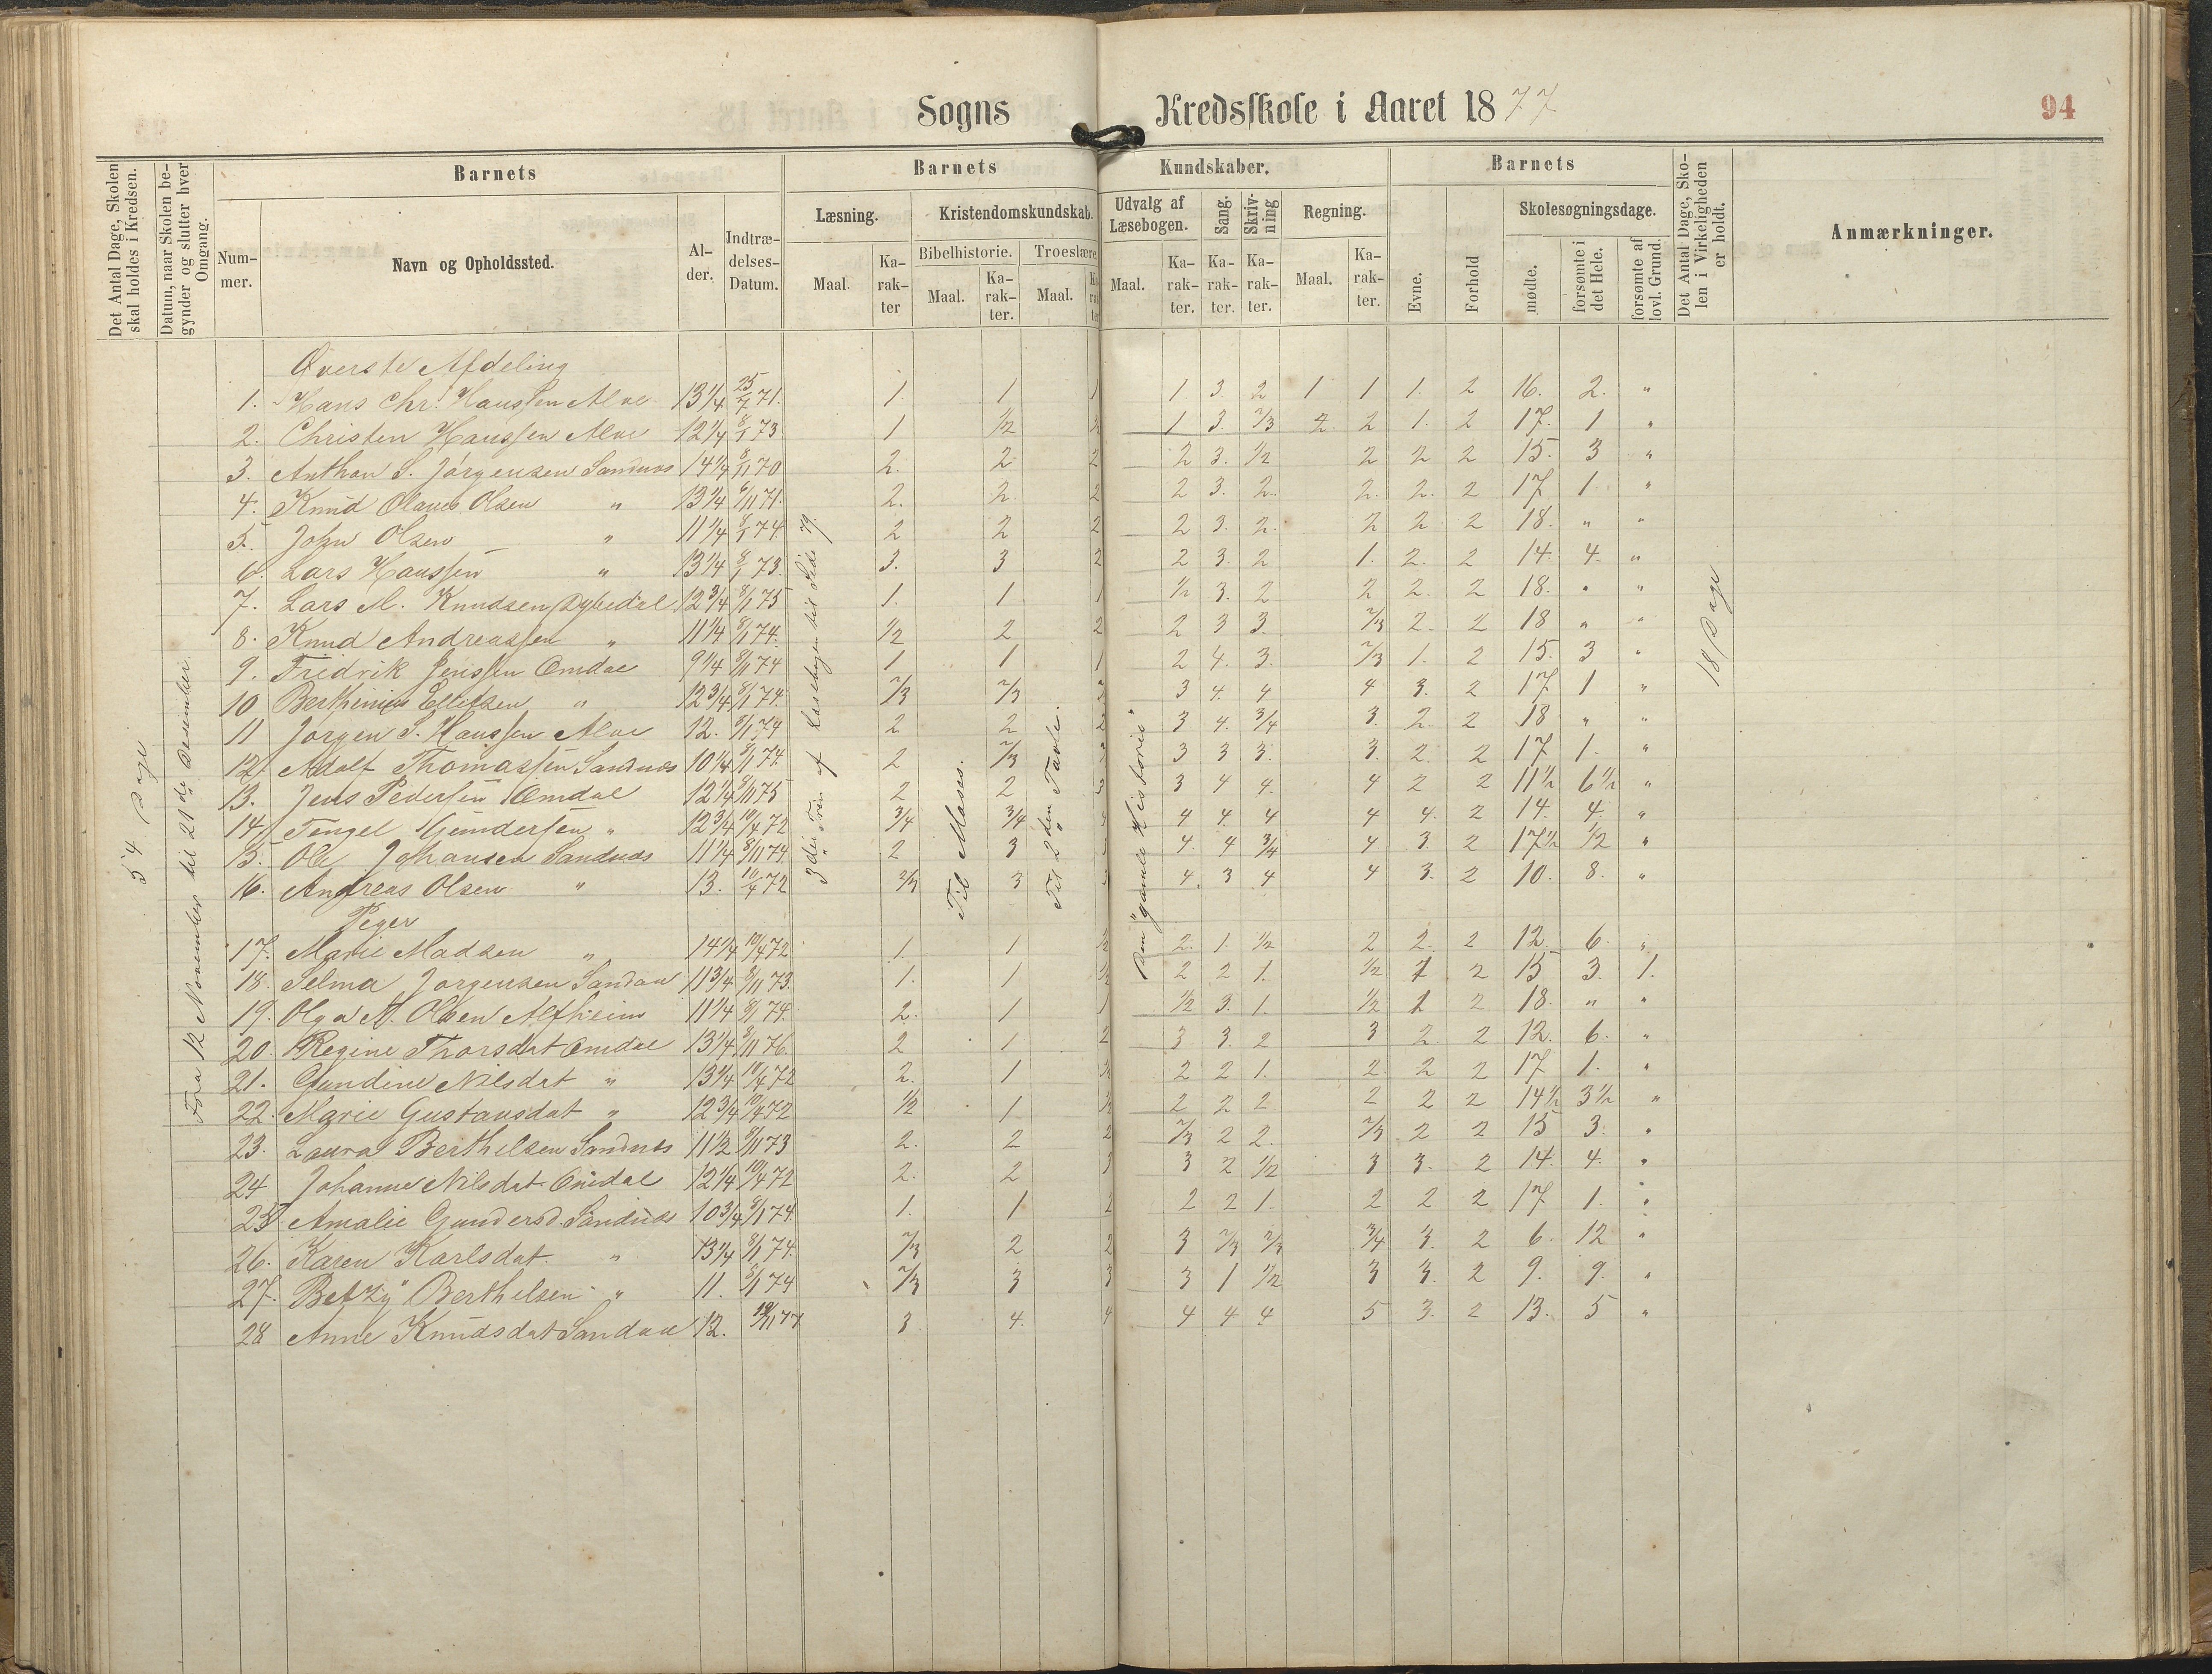 Sogns Kredsskole i Aaret 1877
94
Det Antal Dage, Skolen skal holdes i Kredsen.
Datum, naar Skolen begynder og slutter hver Omgang.
Barnets
Nummer.
Navn og Opholdssted.
Alder.
Indtrædelses-Datum.
Barnets Kundskaber.
Læsning.
Maal.
Karakter
Kristendomskundskab.
Bibelhistorie.
Maal.
Karakter.
Troeslære
Maal.
Udvalg af Læsebogen.
Maal.
Karakter.
Sang.
Karakter.
Skrivning
Karakter.
Regning.
Maal.
Karakter.
Barnets
Evne.
Forhold
Skolesøgningsdage.
mødte.
forsømte i det Hele.
forsømte af lovl. Grund.
Det Antal Dage, Skolen i Virkeligheden er holdt.
Anmærkninger.
54 Dage
Fra 12 November til 21de Desember.
3die Trin af Læsebogen til Side 79.
Til Moses.
Til 2den Tavle.
Den "gamle Historie"
18 Dage
Øverste Afdeling
1. Hans Chr. Hanssen Alve 13 1/4 25/7 71. 1. 1 1 1. 3 2 1 1 1. 2 16. 2. "
2. Christen Hanssen Alve 12 1/4 8/1 73 1 1/2 1 3. 2/3 2. 2 1. 2 17. 1 "
3. Anthon S. Jørgensen Sandnes 14 1/4 8/11 70 2. 2 2 2 3. 1/2 2 2 2 15. 3 "
4. Knud Olaves Olsen " 13 1/4 6/11 71. 2. 2. 2 2 3. 2. 2. 2. 2 17 1 "
5. John Olsen " 11 1/4 8/1 74. 2 2 2 2 3. 2. 2 2 2 18. " "
6. Lars Hanssen " 13 1/4 8/1 73. 3. 3 2 2 3. 2 1. 2. 2 14. 4. "
7. Lars M. Knudsen Dybedal 12 3/4 8/1 75 1. 1 1 1/2 3. 2 2 2. 2 18. " "
8. Knud Andreassen " 11 1/4 8/1 74. 1/2 2 2 2 3 3 2/3 2. 2 18 " "
9. Fridrik Jenssen Omdal 9 1/4 8/11 74 1 1 1 2 4. 3. 2/3 1. 2 15. 3 "
10 Berthinius Ellefsen " 12 3/4 8/1 74. 2/3 2/3 3 4. 4 4 3. 2 17 1 "
11 Jørgen S. Hanssen Alve 12. 8/1 74 2 2 2 3 4. 3/4 3. 2 2 18 " "
12. Adolf Thomassen Sandnes 10 1/4 8/1 74. 2 2/3 3 3 3. 3. 2. 2 17 1. "
13. Jens Pedersen Omdal 12 1/4 8/11 75 2 2 3 3 4 4. 4 2 2 11 1/2 6 1/2 "
14. Tengel Gundersen " 12 3/4 10/4 72 3/4 3/4 4 4 4. 4 4 4. 2 14. 4. "
15. Ole Johansen Sandnes 11 1/4 8/11 74. 2 3 4. 4 3/4 4 3. 2 17 1/2 1/2 "
16. Andreas Olsen " 13. 10/4 72 2/3 3 4. 3 4 4 3. 2 10. 8. "
Piger
17. Marie Madsen " 14 1/4 10/4 72 1. 1 1/2 2. 1. 1/2 2 2. 2 12. 6. "
18. Selma Jørgensen Sandan 11 3/4 8/11 73. 1. 1 1/2 2 2 1. 1/2 1 2 15 3. 1.
19. Olga M. Olsen Alfheim 11 1/4 8/1 74. 2. 1 1 1/2 3. 1. 1/2 1 2 18. " "
20. Regine Thorsdat Omdal 13 1/4 8/11 76. 2 1 2 3 3. 2 3 2. 2 12. 6. "
21. Gundine Nilsdat " 13 1/4 10/4 72 2. 1 2 2 1. 2. 2 2 17 1. "
22. Marie Gustavsdat " 12 3/4 10/4 72 1/2 1 1/2 2 2 2 2 2 2 14 1/2 3 1/2 "
23. Laura Berthelsen Sandnes 11 1/2 8/11 73 2. 2 2 2/3 2 2. 2/3 2 2 15 3. "
24 Johanne Nilsdat. Omdal 12 1/4 10/4 72 2. 2 3 3 2 1/2 3 3. 2 14. 4. "
25. Amalie Gundersd. Sandnes 10 3/4 8/1 74. 1. 1 2 2 2 1. 2 2 2 17 1. "
26. Karen Karlsdat. " 13 1/4 8/1 74. 2/3 2 2 3 2/3 2/3 3/4 3. 2 6. 12 "
27. Betzy Berthelsen " 11. 8/1 74 2/3 3 3 3 1 1/2 3 3. 2 9. 9. "
28 Anne Knudsdat Sandan 12. 19/11 77 3. 4. 4 4 4 4 5 3. 2 13. 5 "